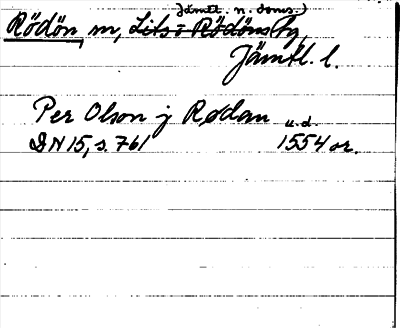 Jämtl. n. doms.)
Rödön m, Lits o Rödöns tg,
Jämtl. l.
Per Olson j Rødan u.d.
DN 15, s. 761 1554 or.